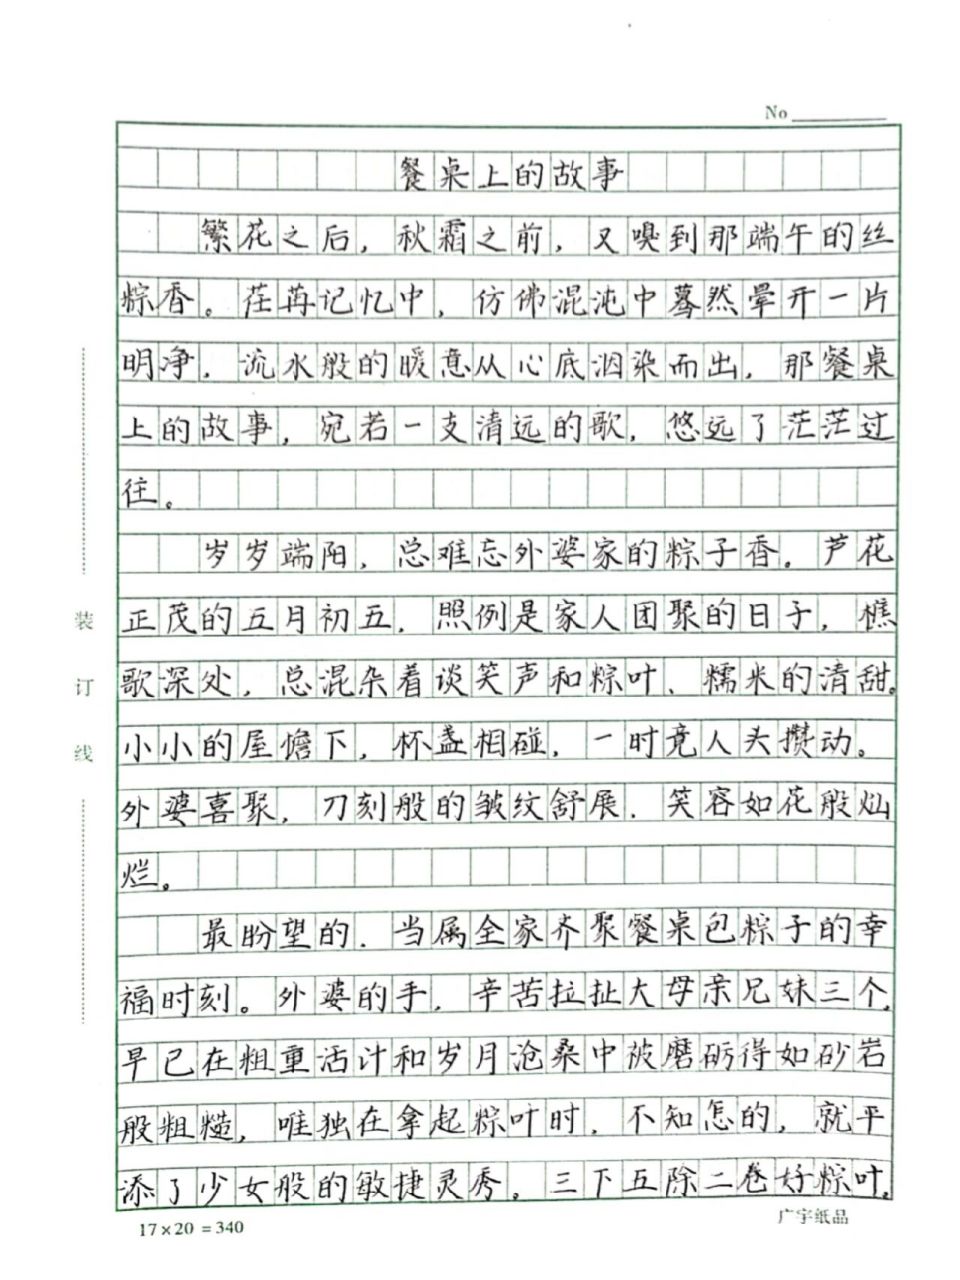 No
餐桌上的故事
繁花之后，秋霜之前，又嗅到那端午的丝
粽香。荏苒记忆中，仿佛混沌中蓦然晕开一片
明净，流水般的暖意从心底洇染而出，那餐桌
上的故事，宛若一支清远的歌，悠远了茫茫过
往。
岁岁端阳，总难忘外婆家的粽子香。芦花
正茂的五月初五，照例是家人团聚的日子，樵
歌深处，总混杂着谈笑声和粽叶、糯米的清甜。
小小的屋檐下，杯盏相碰，一时竟人头攒动。
外婆喜聚，刀刻般的皱纹舒展，笑容如花般灿
烂。
最盼望的，当属全家齐聚餐桌包粽子的幸
福时刻。外婆的手，辛苦拉扯大母亲兄妹三个，
早已在粗重活计和岁月沧桑中被磨砺得如砂岩
般粗糙，唯独在拿起粽叶时，不知怎的，就平
添了少女般的敏捷灵秀。三下五除二卷好粽叶，
装订线
17×20=340
广宇纸品